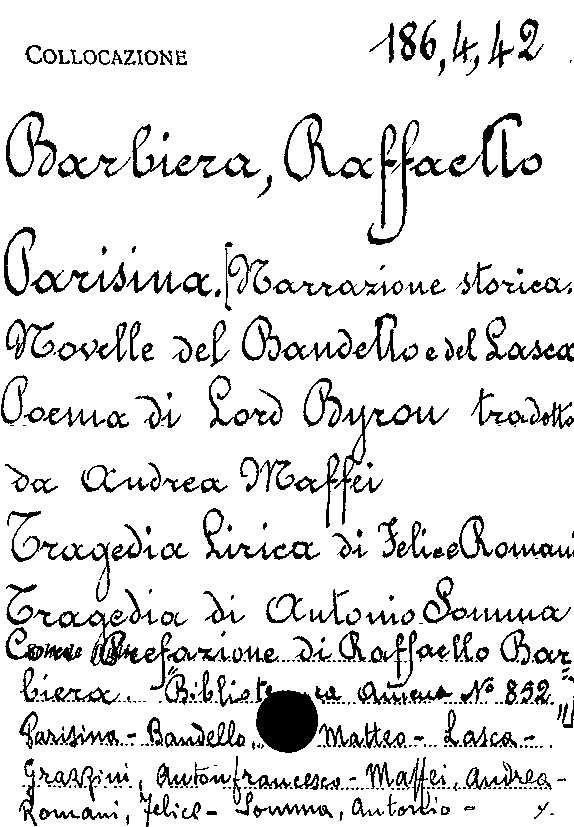 COLLOCAZIONE 186,4,42
Barbiera, Raffaello
Parisina. [Narrazione storica.
Novelle del Bandello e del Lasca
Poema di Lord Byron tradotto
da Andrea Maffei
Tragedia Lirica di Felice Romani
Tragedia di Antonio Somma
Con Prefazione di Raffaello Bar=
biera. "Biblioteca Amena No 852"]
Parisina - Bandello, Matteo - Lasca -
Grazzini, Antonfrancesco - Maffei, Andrea -
Romani, Felice - Somma, Antonio -